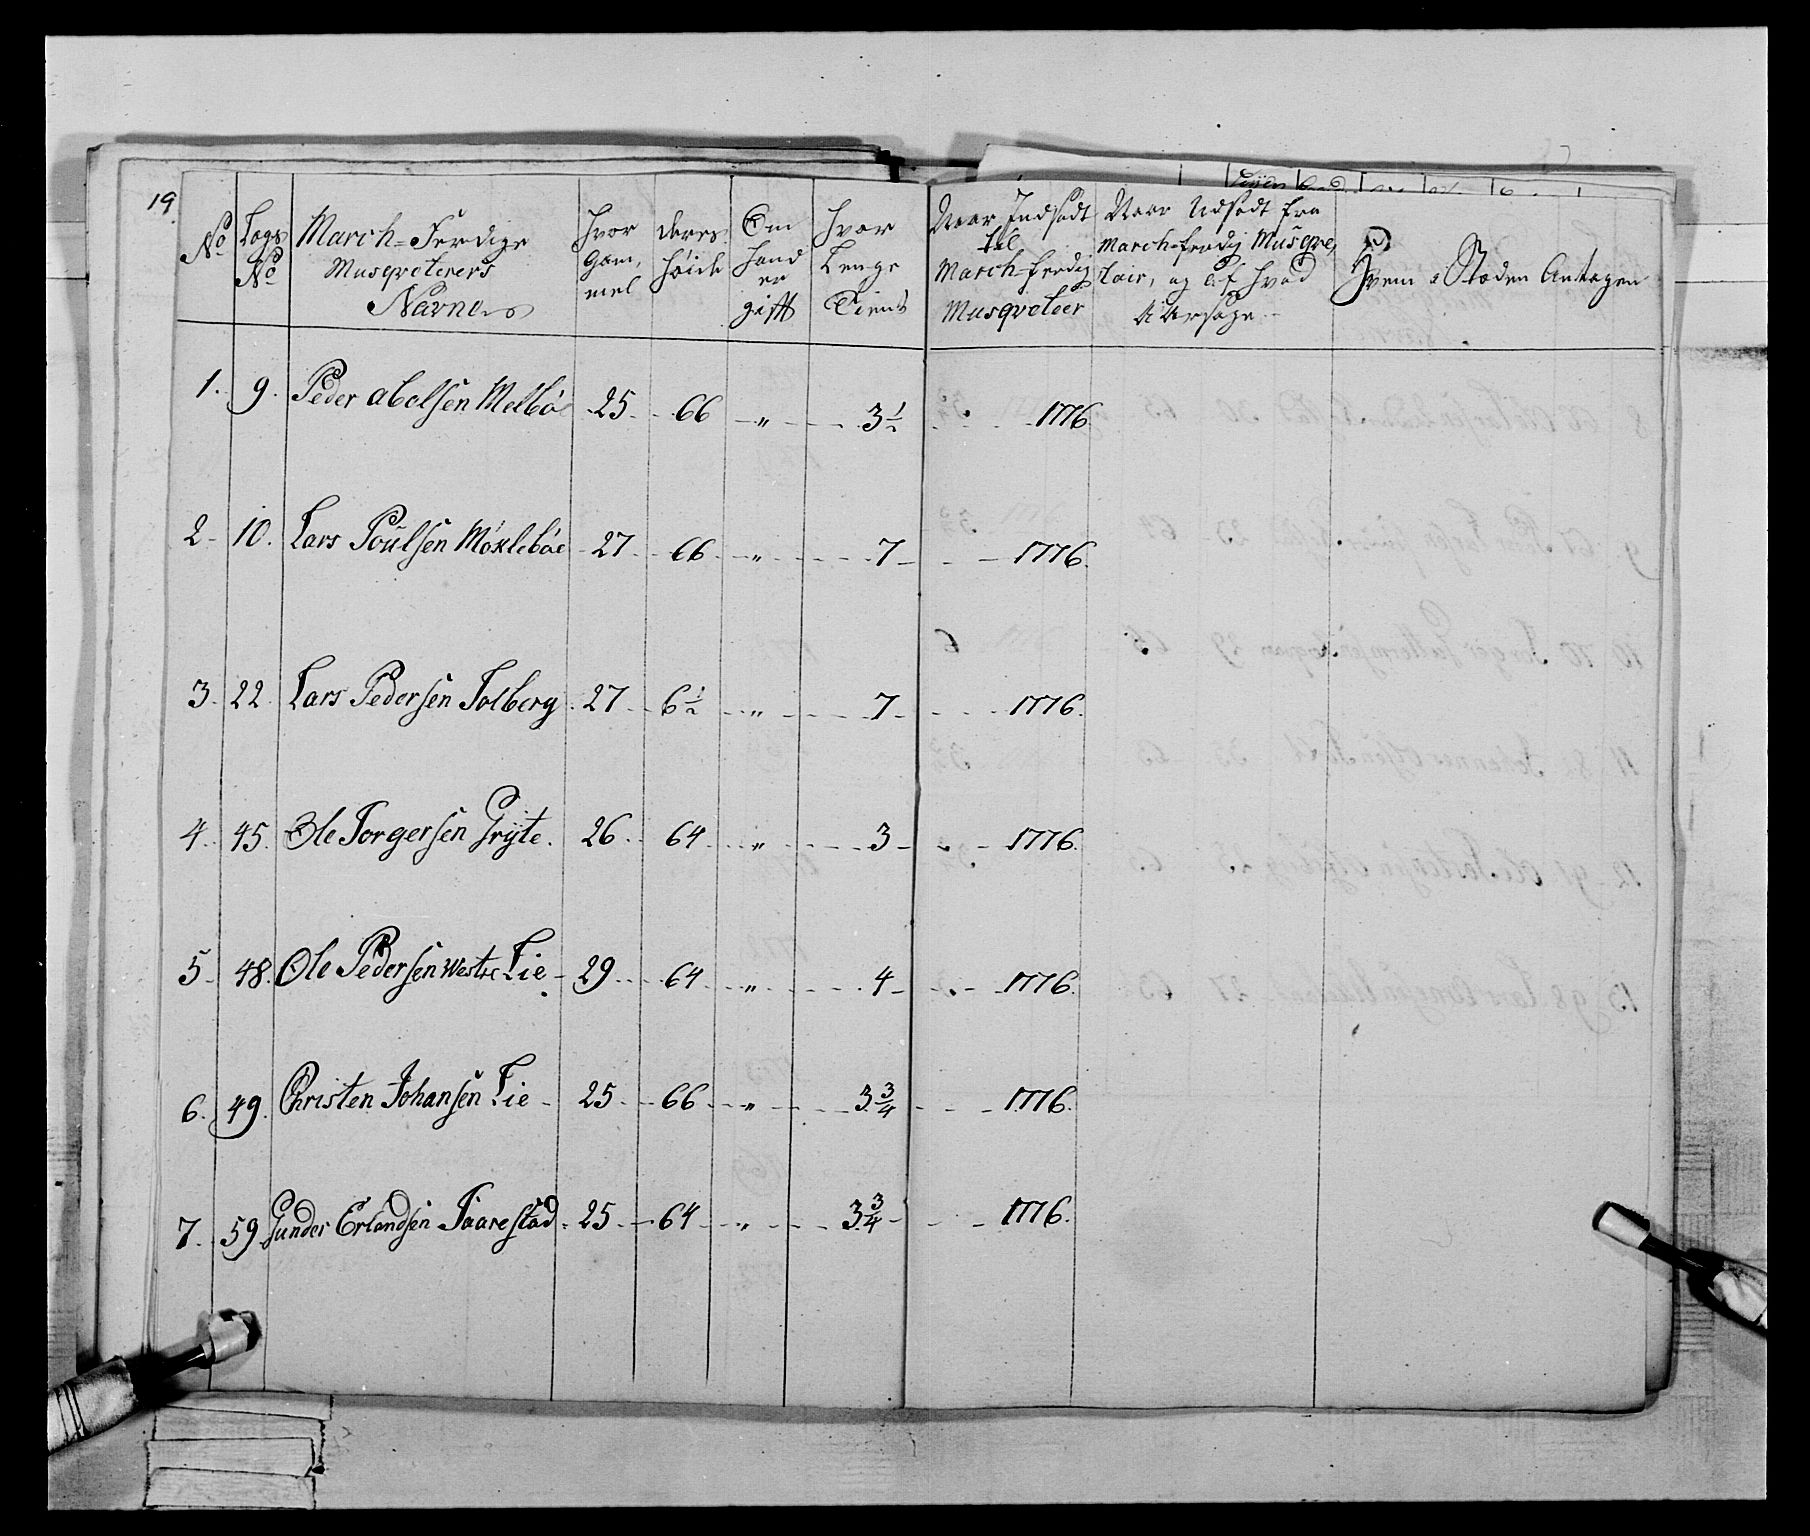 19
No
Lags No
March-Ferdige Musqveterers Navne
Hvor gam, mel
deres höide
Om hand er gift
Hvor Lenge Tient
Naar Indsadt til March-ferdig Musqveteer
Naar Udsadt fra March-ferdig Musqve, teer, og af hvad Aarsage
Hvem i Stæden Antagen
1. 9. Peder Abelsen Melböe 25 66 " 3½ 1776.
2 10. Lars Poulsen Möxleböe 27 66 " 7 1776.
3. 22. Lars Pedersen Solberg 27 6½ " 7 1776.
4. 45. Ole Torgersen Gryte. 26 64 " 3 1776.
5 48. Ole Pedersen Westre Lie 29 64 " 4 1776.
6. 49. Christen Johansen Lie 25 66 " 3¾ 1776.
7. 59 Gunder Erlandsen Taarestad 25 64 " 3¾ 1776.